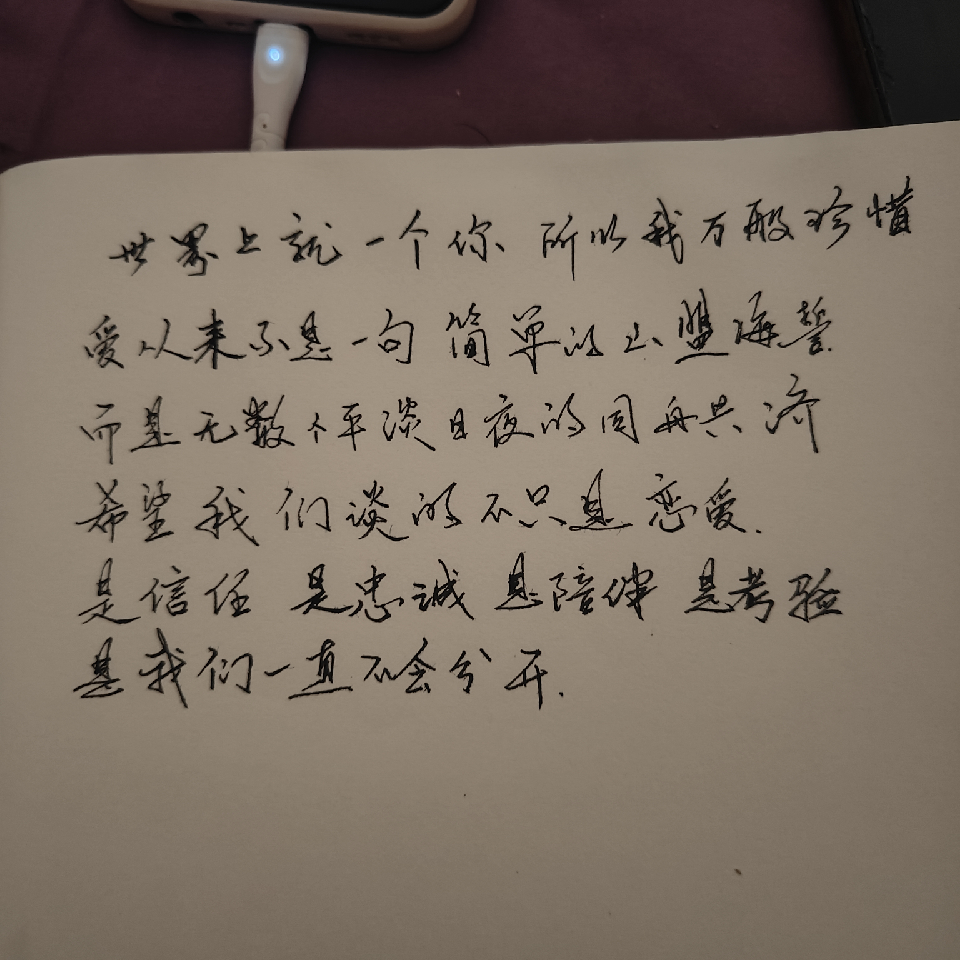 世界上就一个你 所以我万般珍惜
爱从来不是一句 简单的山盟海誓
而是无数个平淡日夜的同舟共济
希望我们谈的不只是恋爱.
是信任 是忠诚 是陪伴 是考验
是我们一直不会分开.